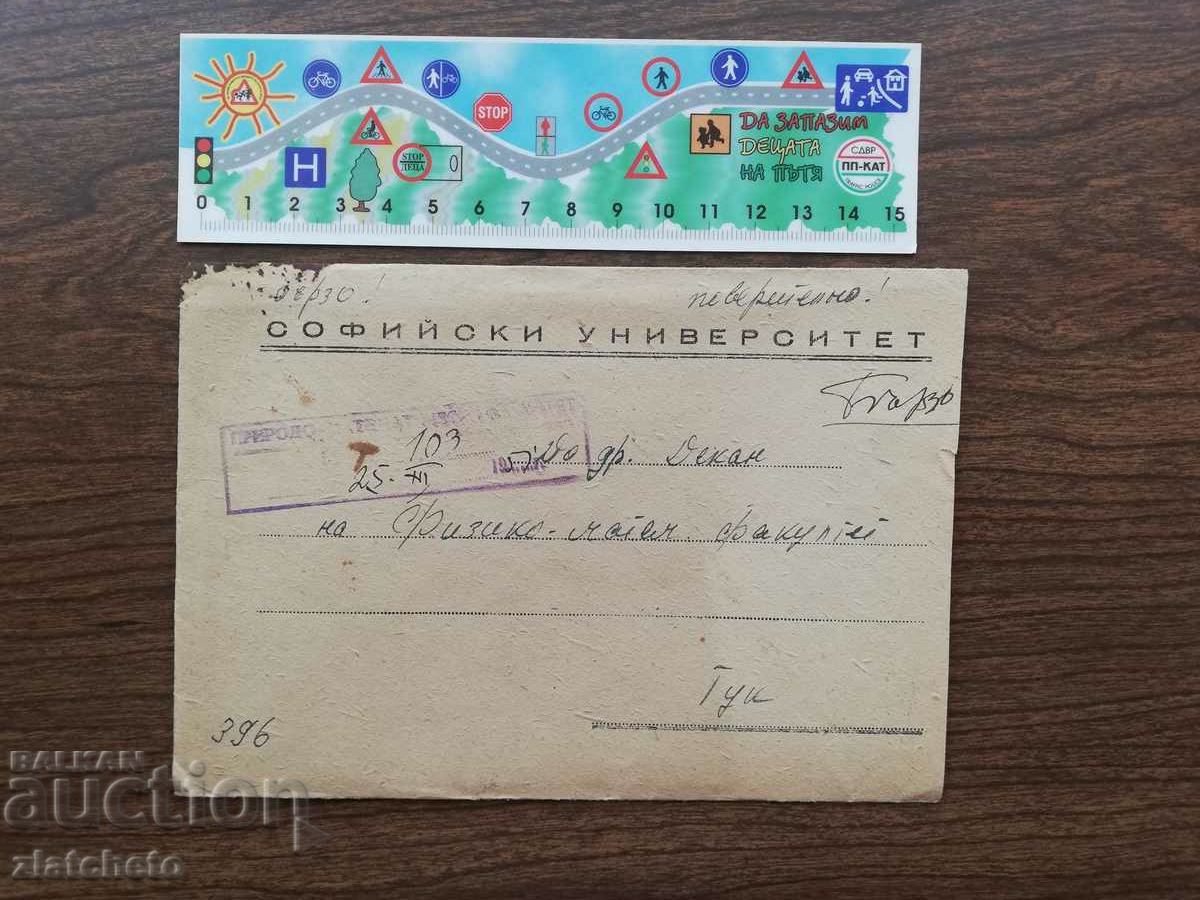 STOP
H
STOP
ДЕЦА
ДА ЗАПАЗИМ
ДЕЦАТА
НА ПЪТЯ
СДВР
ПП-КАТ
TRAFFIC POLICE
0 1 2 3 4 5 6 7 8 9 10 11 12 13 14 15
бързо! поверително!
СОФИЙСКИ УНИВЕРСИТЕТ
Бързо
ПРИРОДО
103
25. XI
До др. Декан
на Физико-матем. факултет
Тук
396
BALKAN
auction
zlatcheto